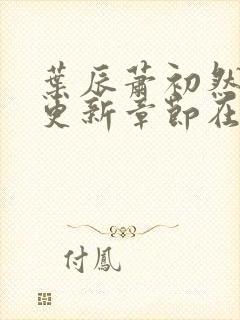 葉辰蕭初然
更新章節在
付鳳